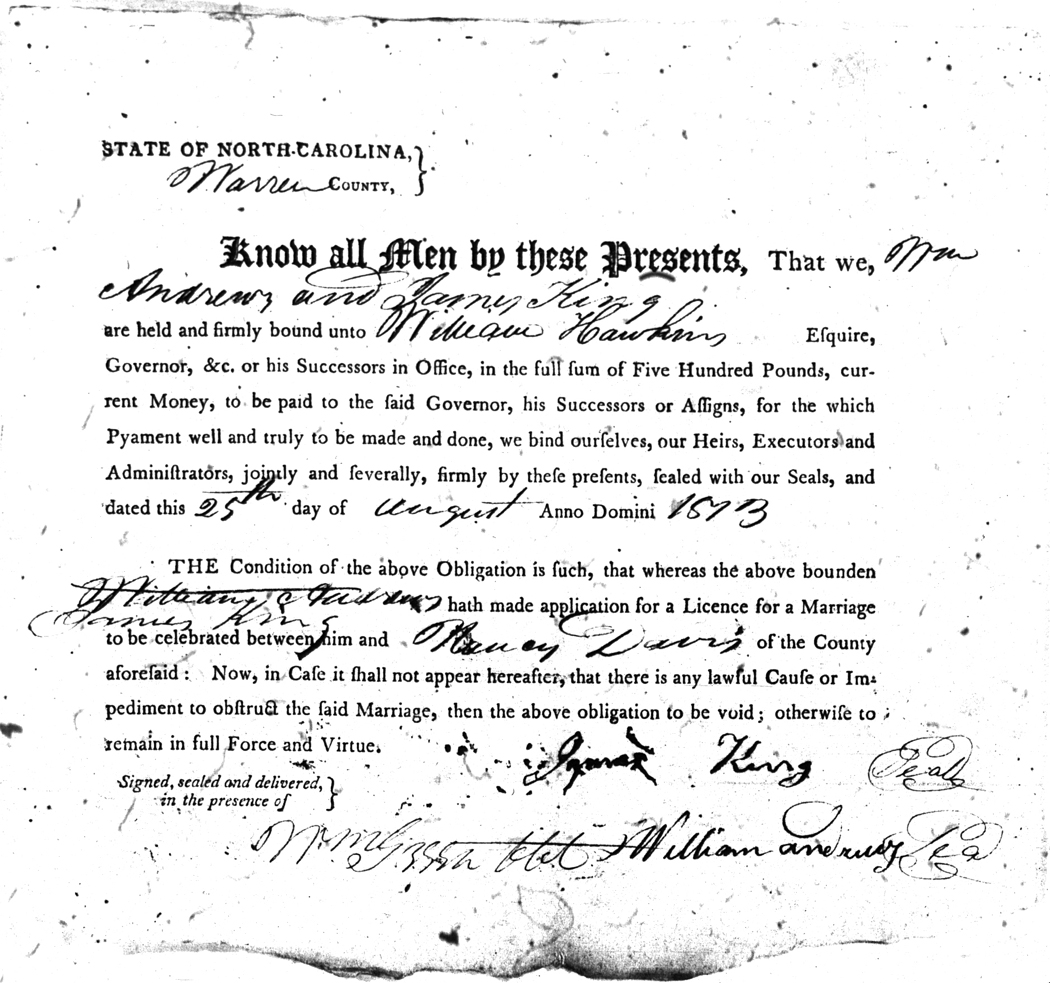 STATE OF NORTH-CAROLINA,
Warren COUNTY,
Know all Men by these Presents, That we, Wm
Andrews and James King
are held and firmly bound unto William Hawkins Eſquire,
Governor, &c. or his Successors in Office, in the full ſum of Five Hundred Pounds, cur-
rent Money, to be paid to the ſaid Governor, his Successors or Aſſigns, for the which
Pyament well and truly to be made and done, we bind ourſelves, our Heirs, Executors and
Adminiſtrators, jointly and ſeverally, firmly by theſe preſents, ſealed with our Seals, and
dated this 25th day of August Anno Domini 1813
THE Condition of the above Obligation is ſuch, that whereas the above bounden
William Andrews hath made application for a Licence for a Marriage
James King
to be celebrated between him and Nancy Davis of the County
aforeſaid: Now, in Caſe it ſhall not appear hereafter, that there is any lawful Cauſe or Im-
pediment to obſtruct the ſaid Marriage, then the above obligation to be void; otherwiſe to
remain in full Force and Virtue.
James King Seal
Signed, sealed and delivered,
in the presence of
Wm William Andrews Sea